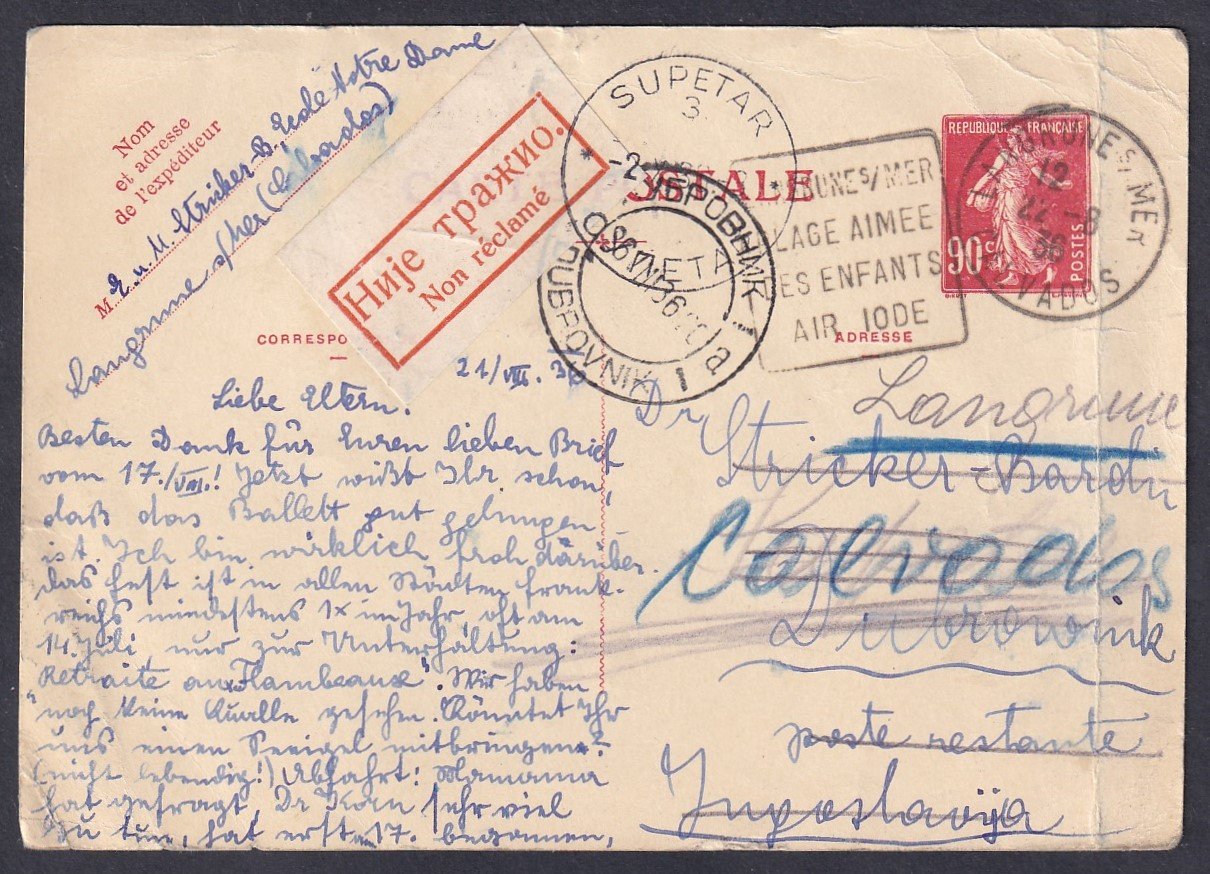 Nom
et adresse
de l'expéditeur
M. E. u. M. Stricker-B, Ecole Notre Dame
Langrune s/Mer (Calvados)
Није тражио.
Non réclamé
SUPETAR
3
-2
STALE
REPUBLIQUE FRANÇAISE
90c
POSTES
RUNE S/MER
LAGE AIMEE
ES ENFANTS
AIR IODE
NE S/ MER
12
22 -8
36
VADOS
DUBROVNIK 1
a
CORRESPO
ADRESSE
21/VIII. 36
Liebe Eltern!
Besten Dank für Euren lieben Brief
vom 17./VIII.! Jetzt wißt Ihr schon,
daß das Ballett gut gelungen
ist. Ich bin wirklich froh darüber.
Das Fest ist in allen Städten Frank-
reichs mindestens 1x im Jahr, oft am
14. Juli nur zur Unterhaltung:
"Retraite aux Flambeaux". Wir haben
noch keine Qualle gesehen. Könntet Ihr
uns einen Seeigel mitbringen?
(nicht lebendig!) Abfahrt: Mamama
hat gefragt, Dr Korn sehr viel
zu tun, hat erst am 17. begonnen,
Langrune
Dr Stricker-Bardin
Calvados
Dubrovnik
poste restante
Jugoslavija